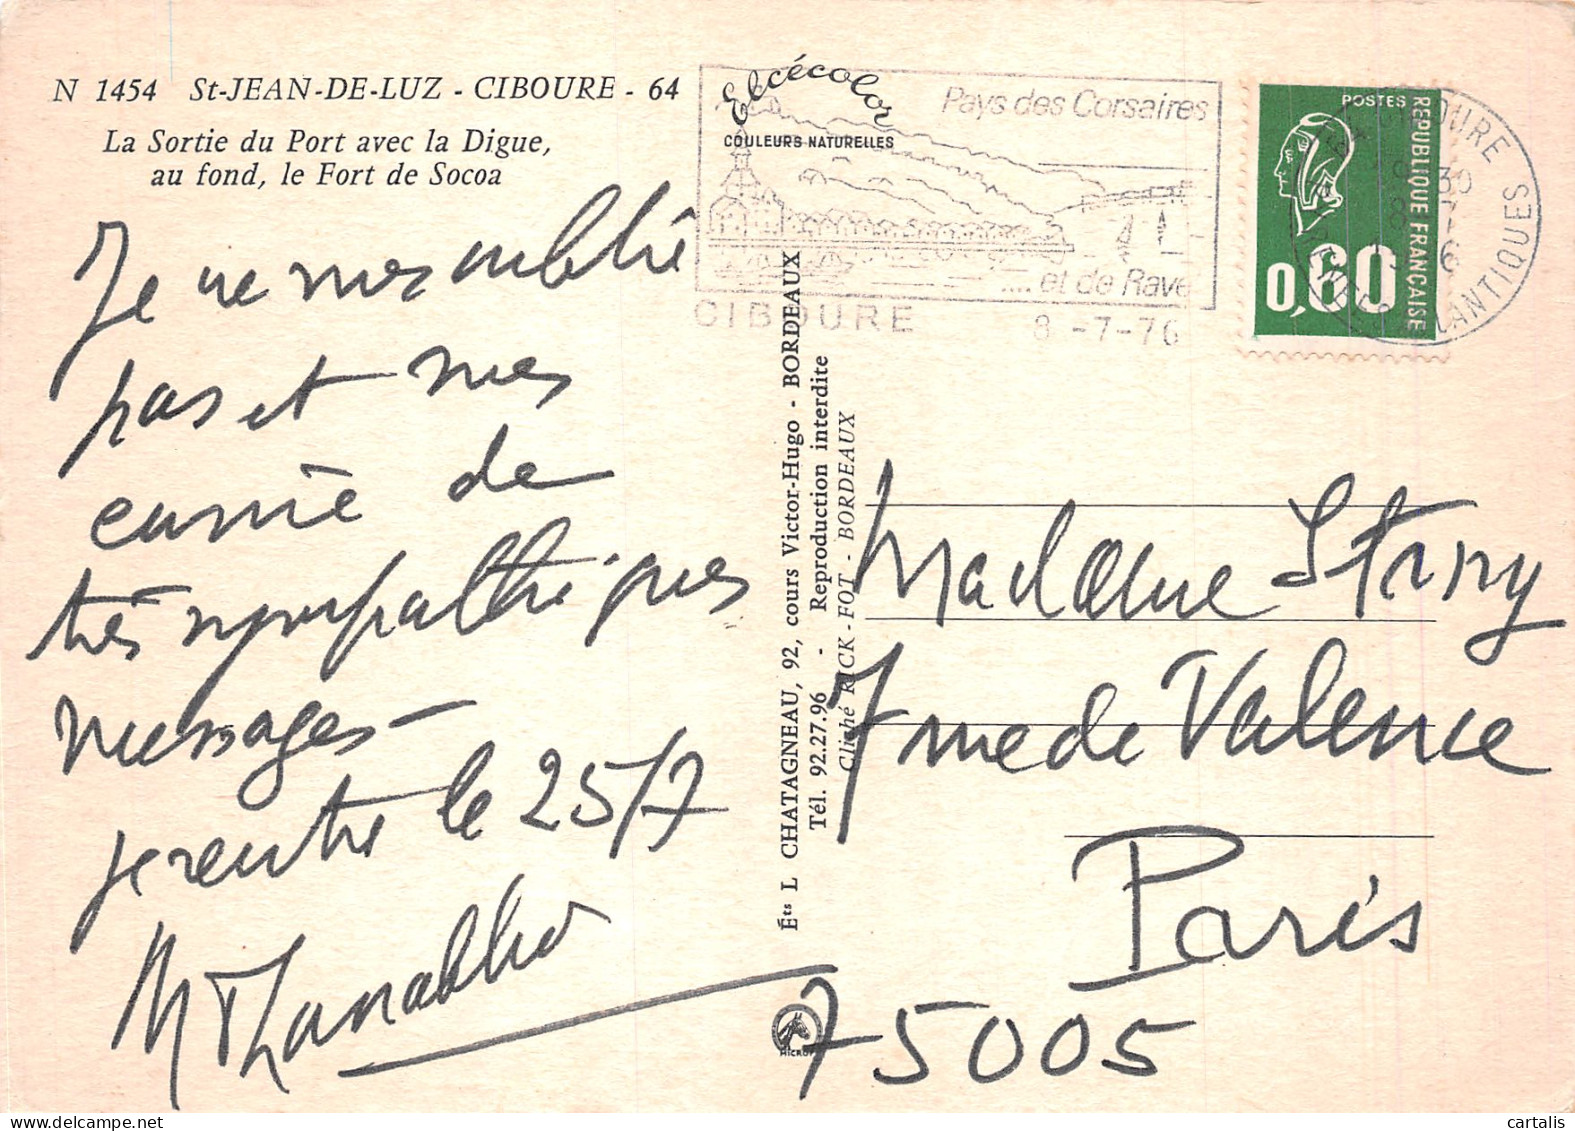 N 1454 St-JEAN-DE-LUZ - CIBOURE - 64
La Sortie du Port avec la Digue,
au fond, le Fort de Socoa
Elcécolor
COULEURS NATURELLES
Pays des Corsaires
.... et de Rave
CIBOURE
8 -7-76
POSTES
REPUBLIQUE FRANÇAISE
0,60
CIBOURE
ATLANTIQUES
Je ne mes oublié
pas et mes
de
très sympathiques
messages -
je rentre le 25/7
Éts L CHATAGNEAU, 92, cours Victor-Hugo - BORDEAUX
Tél. 92.27.96 - Reproduction interdite
Cliché RICK-FOT - BORDEAUX
Madame
7 rue de Valence
Paris
75005
cartalis sur delcampe.net